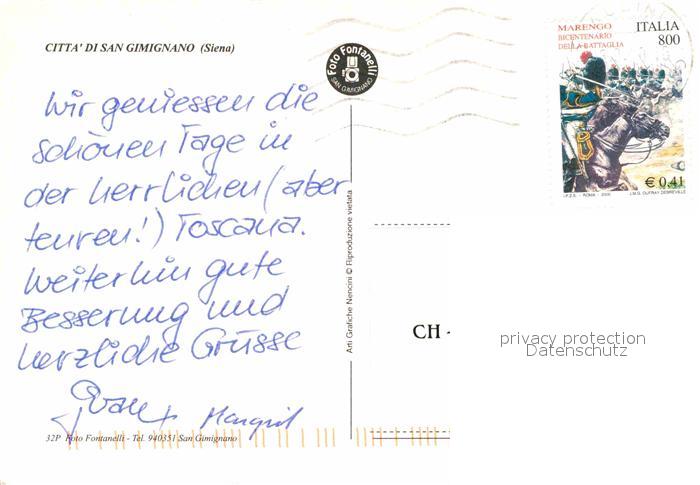 CITTA' DI SAN GIMIGNANO (Siena)
Foto Fontanelli
SAN GIMIGNANO
MARENGO
BICENTENARIO
DELLA BATTAGLIA
ITALIA
800
€ 0,41
I.P.Z.S. - ROMA - 2000
Wir geniessen die
schönen Tage in
der herrlichen (aber
teuren!) Toscana.
Weiterhin gute
Besserung und
herzliche Grüsse
Margrit
Arti Grafiche Nencini © Riproduzione vietata
CH -
privacy protection
Datenschutz
32P Foto Fontanelli - Tel. 940351 San Gimignano